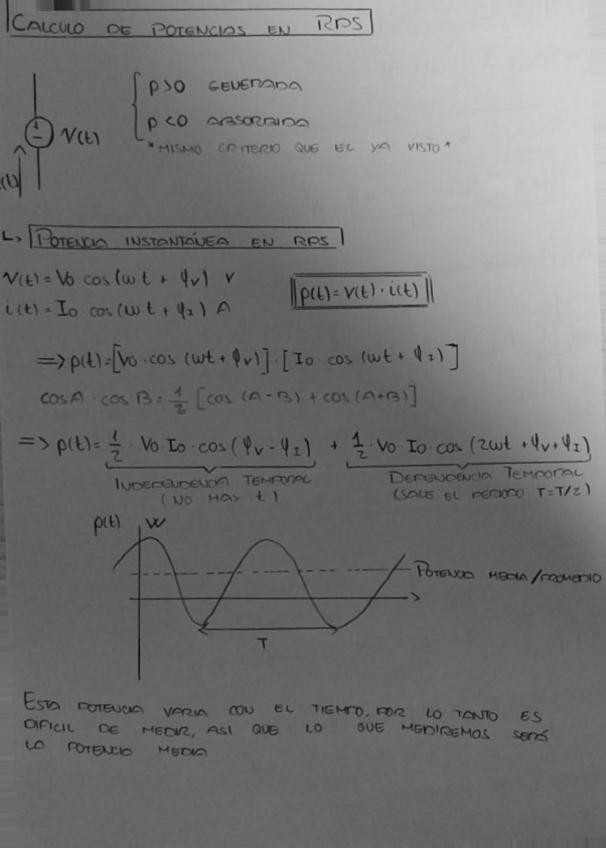 CALCULO DE POTENCIAS EN RPS
p>0 GENERADA
p<0 ABSORBIDA
*MISMO CRITERIO QUE EL YA VISTO*
V(t)
(t)
L> POTENCIA INSTANTÁNEA EN RPS
V(t)= V0 cos(ωt + φv) V
i(t)= I0 · cos(ωt + φI) A
p(t)=v(t)·i(t)
=> p(t)=[V0·cos(ωt+φv)]·[I0·cos(ωt+φI)]
cosA·cosB=1/2 [cos(A-B)+cos(A+B)]
=> p(t)= 1/2·V0·I0·cos(φv-φI) + 1/2·V0 I0·cos(2ωt+φv+φI)
INDEPENDENCIA TEMPORAL
(NO HAY t)
DEPENDENCIA TEMPORAL
(SALE EL PERIODO T=T/2)
p(t) W
POTENCIA MEDIA/PROMEDIO
T
ESTA POTENCIA VARIA CON EL TIEMPO, POR LO TANTO ES
DIFICIL DE MEDIR, ASI QUE LO QUE MEDIREMOS SERÁ
LA POTENCIA MEDIA